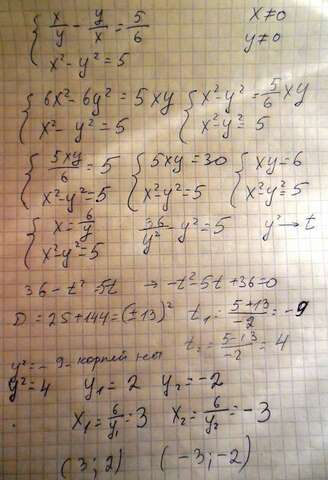 { x/y - y/x = 5/6   x≠0
x² - y² = 5   y≠0
{ 6x² - 6y² = 5xy   { x² - y² = 5/6 xy
x² - y² = 5   x² - y² = 5
{ 5xy/6 = 5   { 5xy = 30   { xy = 6
x² - y² = 5   x² - y² = 5   x² - y² = 5
{ x = 6/y   36/y² - y² = 5   y² → t
x² - y² = 5
36 - t² - 5t → -t² - 5t + 36 = 0
D = 25 + 144 = (±13)²   t₁ = 5+13/-2 = -9
t₂ = 5-13/-2 = 4
y² = -9 - корней нет
y² = 4   y₁ = 2   y₂ = -2
x₁ = 6/y₁ = 3   x₂ = 6/y₂ = -3
(3; 2)   (-3; -2)